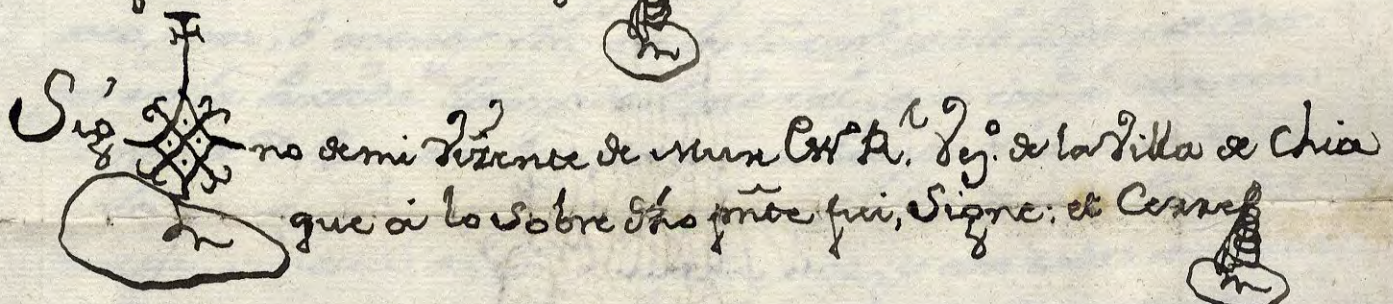 Sig no de mi Vizente de Mur Essno R.l Vez.o de la Villa de Chia
que á lo sobre dho pnte fui, Signe; et Cerre